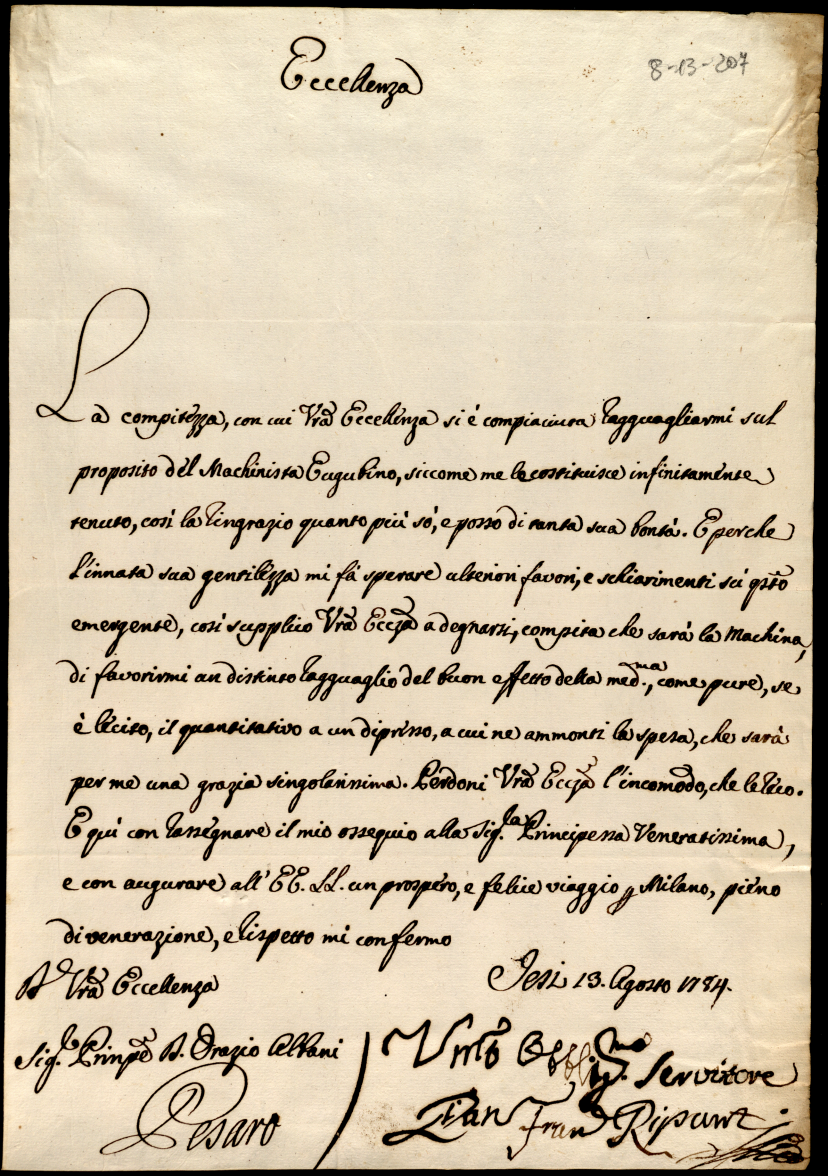 8-13-207
Eccellenza
La compitezza, con cui Vrã Eccellenza si è compiaciuta ragguagliarmi sul
proposito del Machinista Eugubino, siccome me le costituisce infinitamente
tenuto, così la ringrazio quanto più sò, e posso di tanta sua bontà. E perche
l'innata sua gentilezza mi fà sperare ulteriori favori, e schiarimenti sù qsto
emergente, così supplico Vrã Eccza a degnarsi, compita che sarà la Machina,
di favorirmi un distinto ragguaglio del buon effetto della med.ma, come pure, se
è lécito, il quantitativo a un dipresso, a cui ne ammonti la spesa, che sarà
per me una grazia singolarissima. Perdoni Vrã Eccza l'incomodo, che le reco.
E quì con rassegnare il mio ossequio alla Sig.la Principessa Veneratissima,
e con augurare all' EE. LL. un prospero, e felice viaggio p Milano, pieno
di venerazione, e rispetto mi confermo
D Vrã Eccellenza
Jesi 13. Agosto 1784.
Sig.r Prinpe D. Orazio Albani
Pesaro
Vmo Obblig.mo Servitore
Gian Fran Ripanti